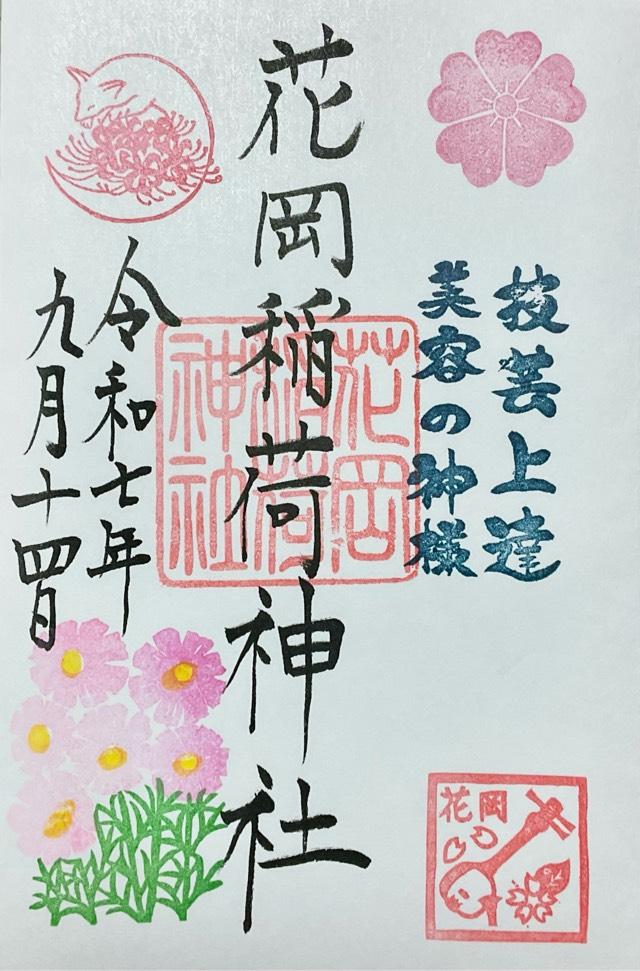 技芸上達
美容の神様
花岡稲荷神社
花岡
稲荷
神社
令和七年
九月十四日
花岡